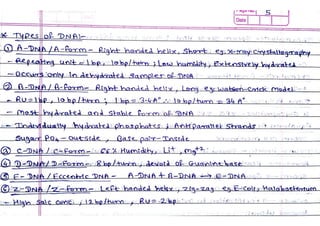 Date 5
* Types of DNA:-
① A-DNA/A-Form- Right handed helix, Short. eg. X-ray crystallography
- Repeating unit = 1bp, 10bp/turn; Low humidity, Extensively hydrated
- Occurs only in dehydrated samples of DNA
② B-DNA/B-Form- Right handed helix, Long eg Watson-Crick Model
- RU=1bp, 10bp/turn; 1bp=3.4A° ∴ 10bp/turn = 34A°
- Most hydrated and Stable form of DNA
- Individually hydrated phosphates; Antiparallel Strands
Sugar PO4 - Outside, Base pair- Inside.
③ C-DNA/C-Form- 66% Humidity, Li+, mg+2
④ D-DNA/D-Form- 8bp/turn, devoid of Guanine base
⑤ E-DNA/Eccentric DNA - A-DNA + B-DNA → E-DNA
⑥ Z-DNA/Z-Form- Left handed helix, zig-zag eg. E-coli, Halobacterium
- High salt conc., 12bp/turn, RU=2bp